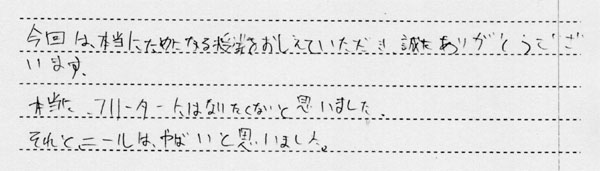 今回は、本当にためになる授業をおしえていただき誠にありがとうござ
います。
本当に、フリーターにはなりたくないと思いました。
それと、ニールは、やばいと思いました。